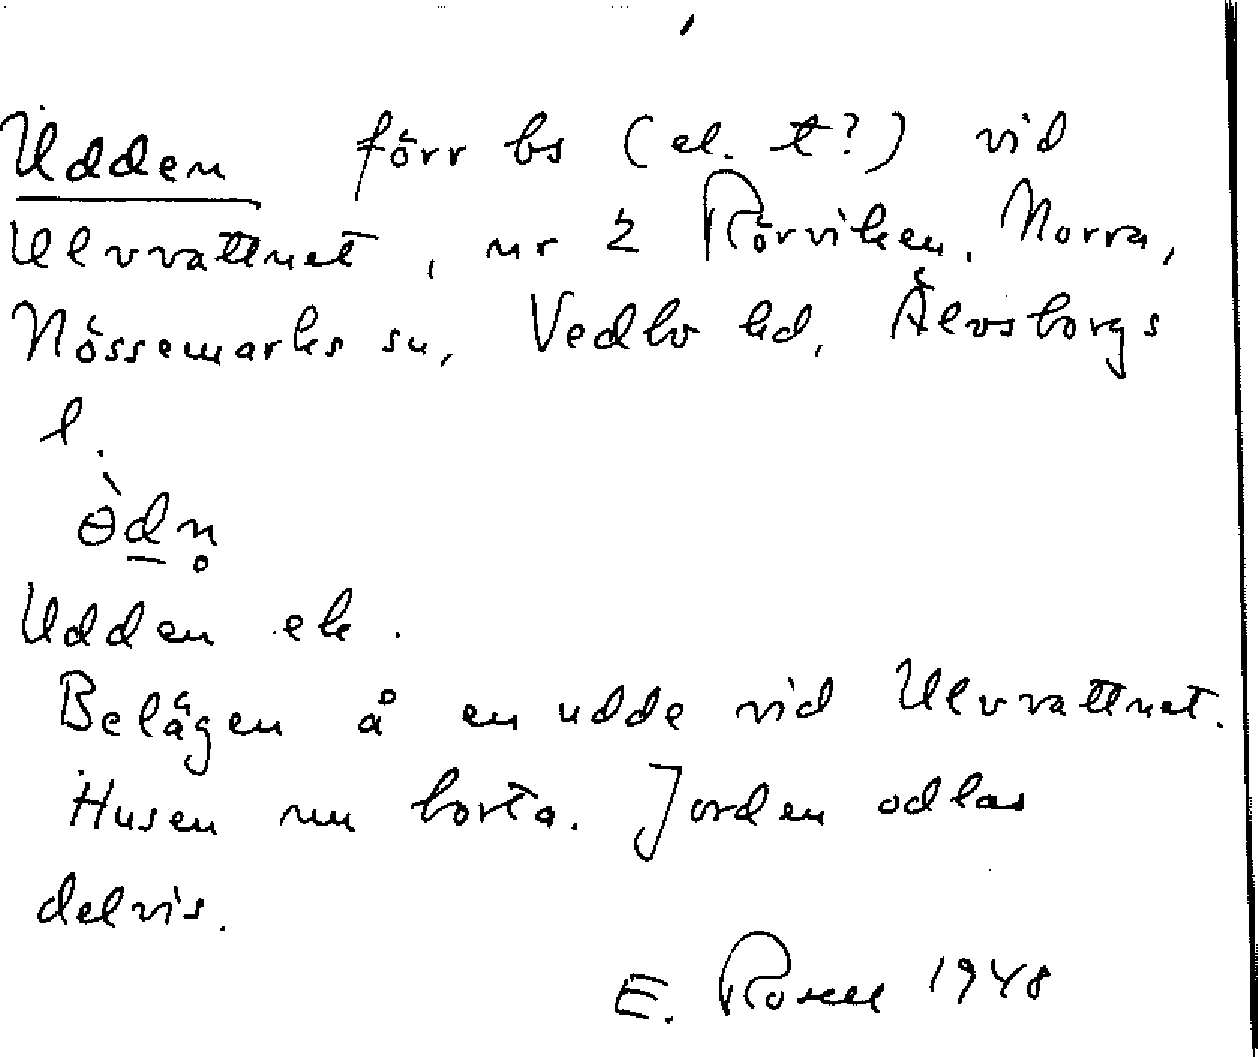 Udden förr bs (el. t?) vid
Ulvvattnet, nr 2 Rörviken, Norra,
Nössemarks sn, Vedbo hd, Älvsborgs
l.
ɵ̀d̲n̥
Udden ek.
Belägen å en udde vid Ulvvattnet.
Husen nu borta. Jorden odlas
delvis.
E. Rosell 1948